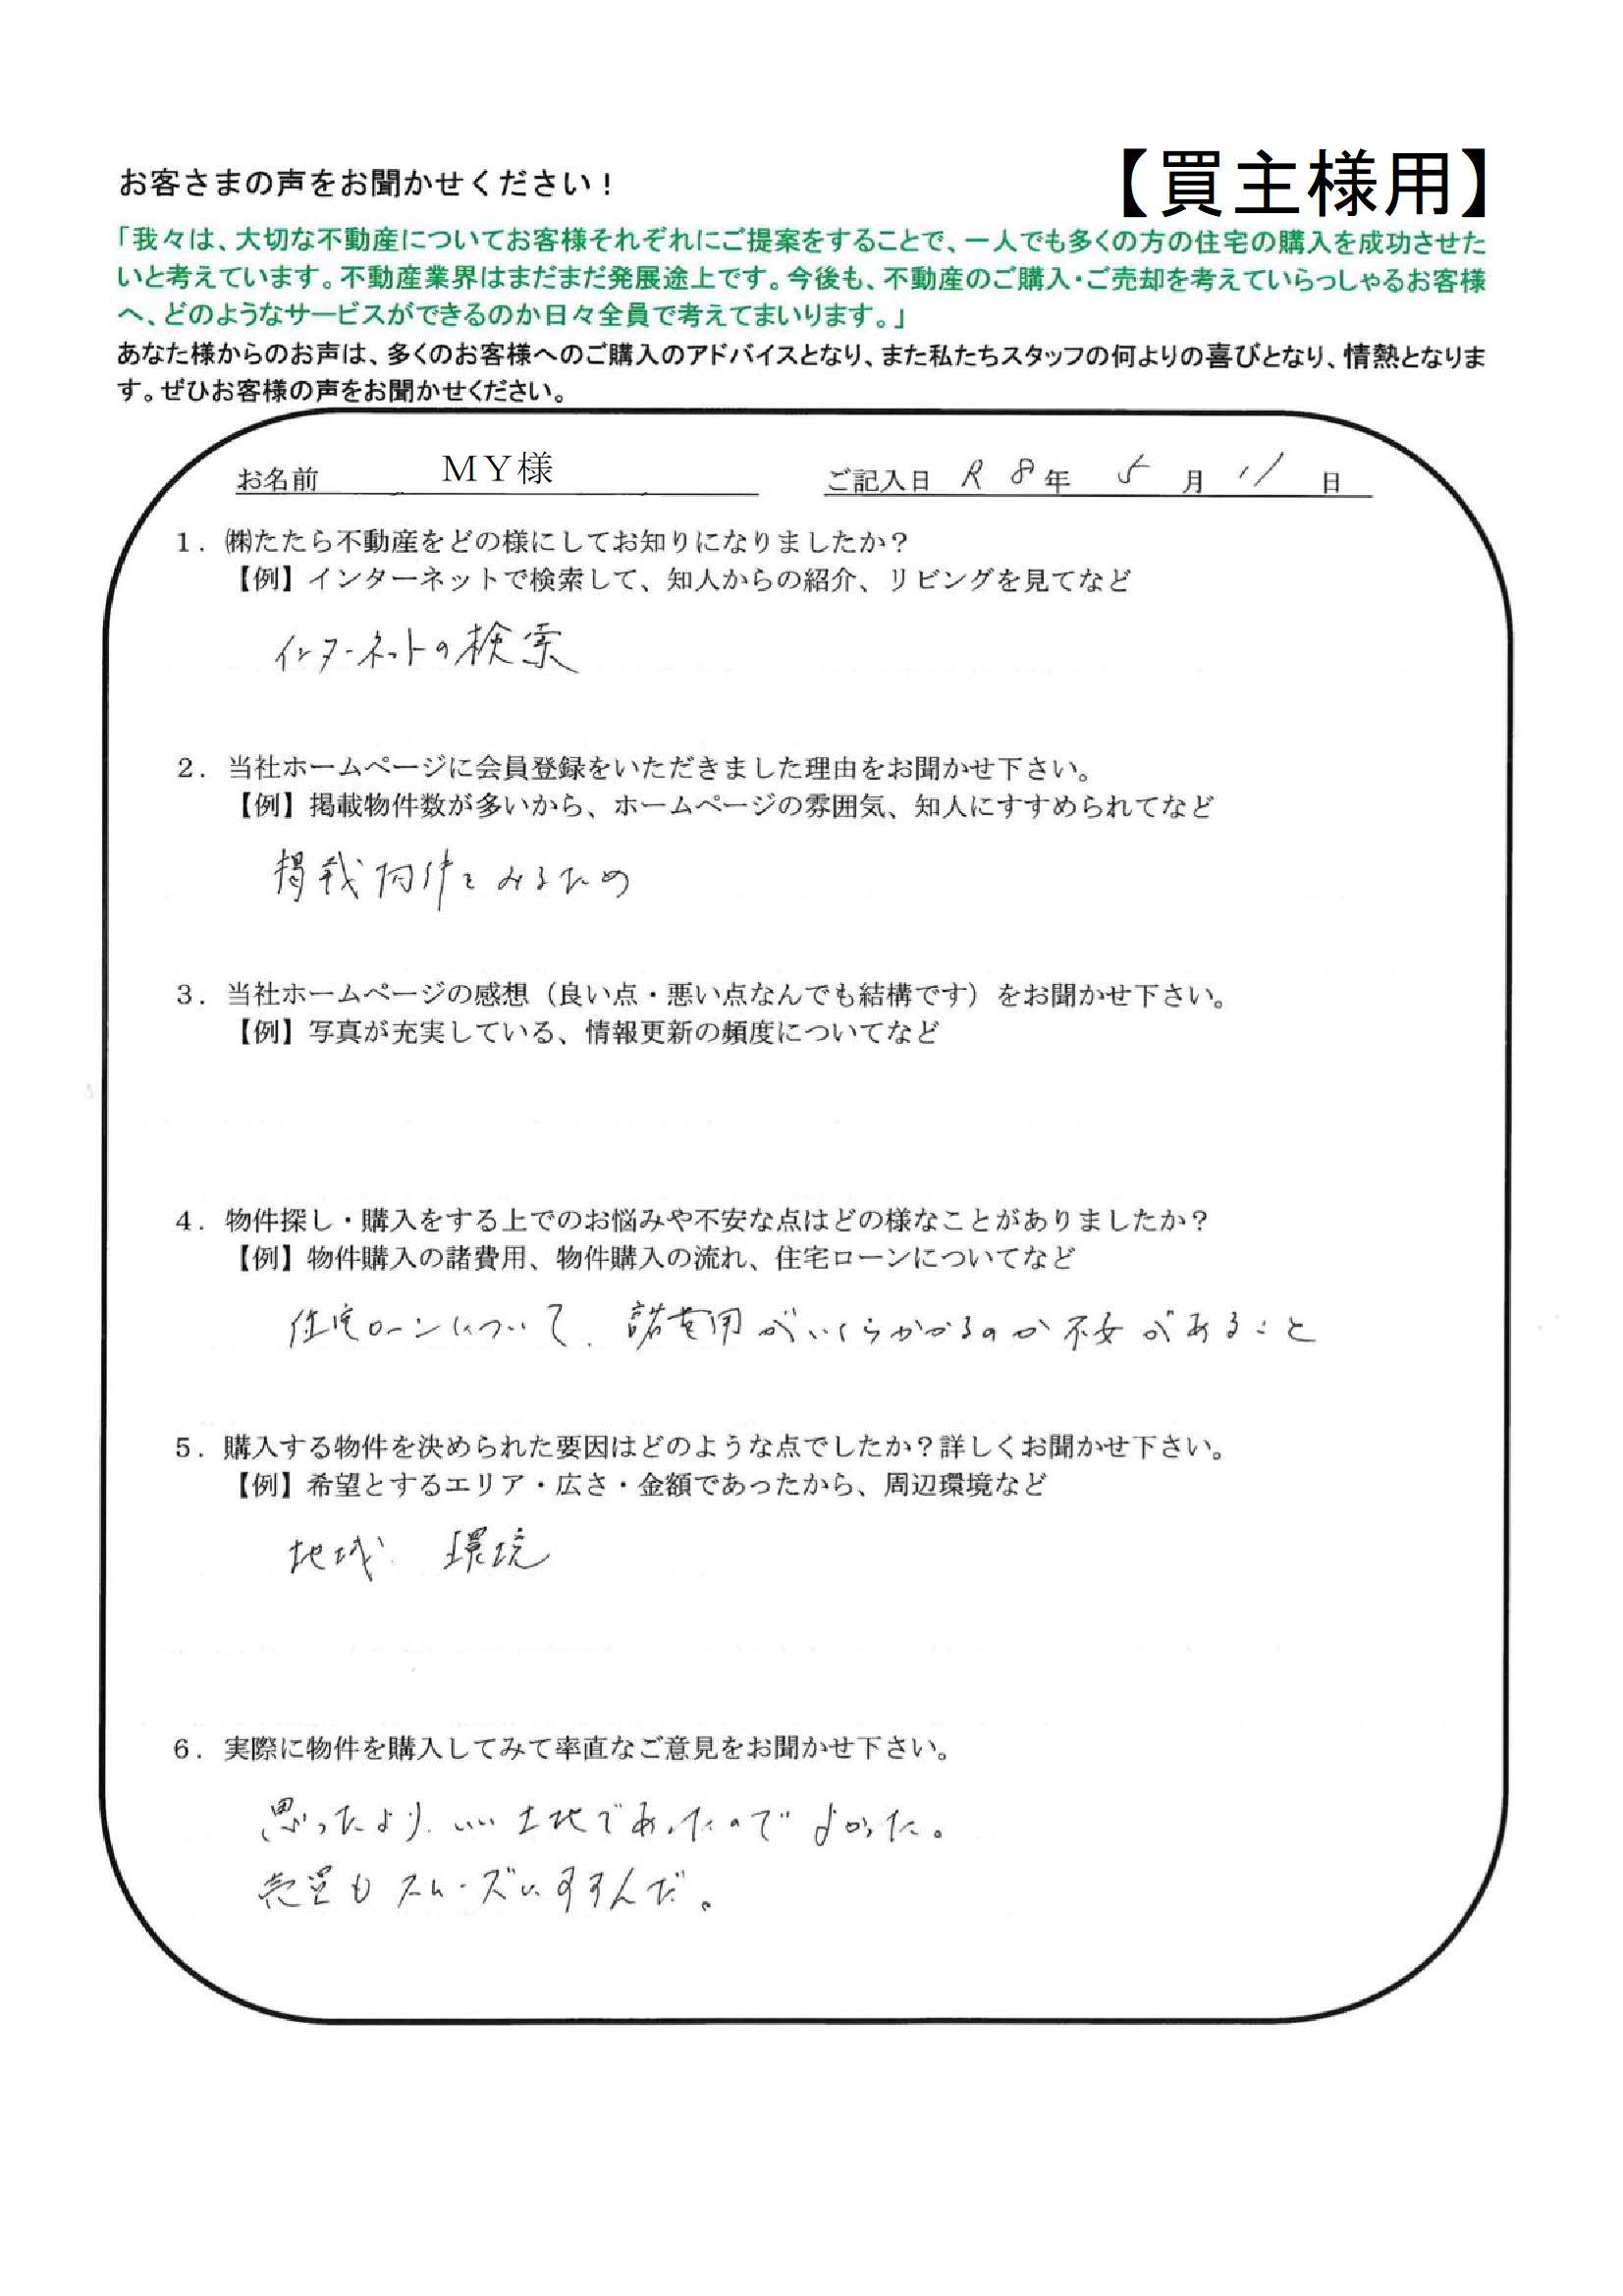 お客さまの声をお聞かせください！
【買主様用】
「我々は、大切な不動産についてお客様それぞれにご提案をすることで、一人でも多くの方の住宅の購入を成功させた
いと考えています。不動産業界はまだまだ発展途上です。今後も、不動産のご購入・ご売却を考えていらっしゃるお客様
へ、どのようなサービスができるのか日々全員で考えてまいります。」
あなた様からのお声は、多くのお客様へのご購入のアドバイスとなり、また私たちスタッフの何よりの喜びとなり、情熱となりま
す。ぜひお客様の声をお聞かせください。
お名前 ＭＹ様 ご記入日 R 8年 5月 11日
１．㈱たたら不動産をどの様にしてお知りになりましたか？
【例】インターネットで検索して、知人からの紹介、リビングを見てなど
インターネットの検索
２．当社ホームページに会員登録をいただきました理由をお聞かせ下さい。
【例】掲載物件数が多いから、ホームページの雰囲気、知人にすすめられてなど
掲載物件をみるため
３．当社ホームページの感想（良い点・悪い点なんでも結構です）をお聞かせ下さい。
【例】写真が充実している、情報更新の頻度についてなど
４．物件探し・購入をする上でのお悩みや不安な点はどの様なことがありましたか？
【例】物件購入の諸費用、物件購入の流れ、住宅ローンについてなど
住宅ローンについて、諸費用がいくらかかるのか不安があること
５．購入する物件を決められた要因はどのような点でしたか？詳しくお聞かせ下さい。
【例】希望とするエリア・広さ・金額であったから、周辺環境など
地域、環境
６．実際に物件を購入してみて率直なご意見をお聞かせ下さい。
思ったより、いい土地であったのでよかった。
売買もスムーズにすすんだ。